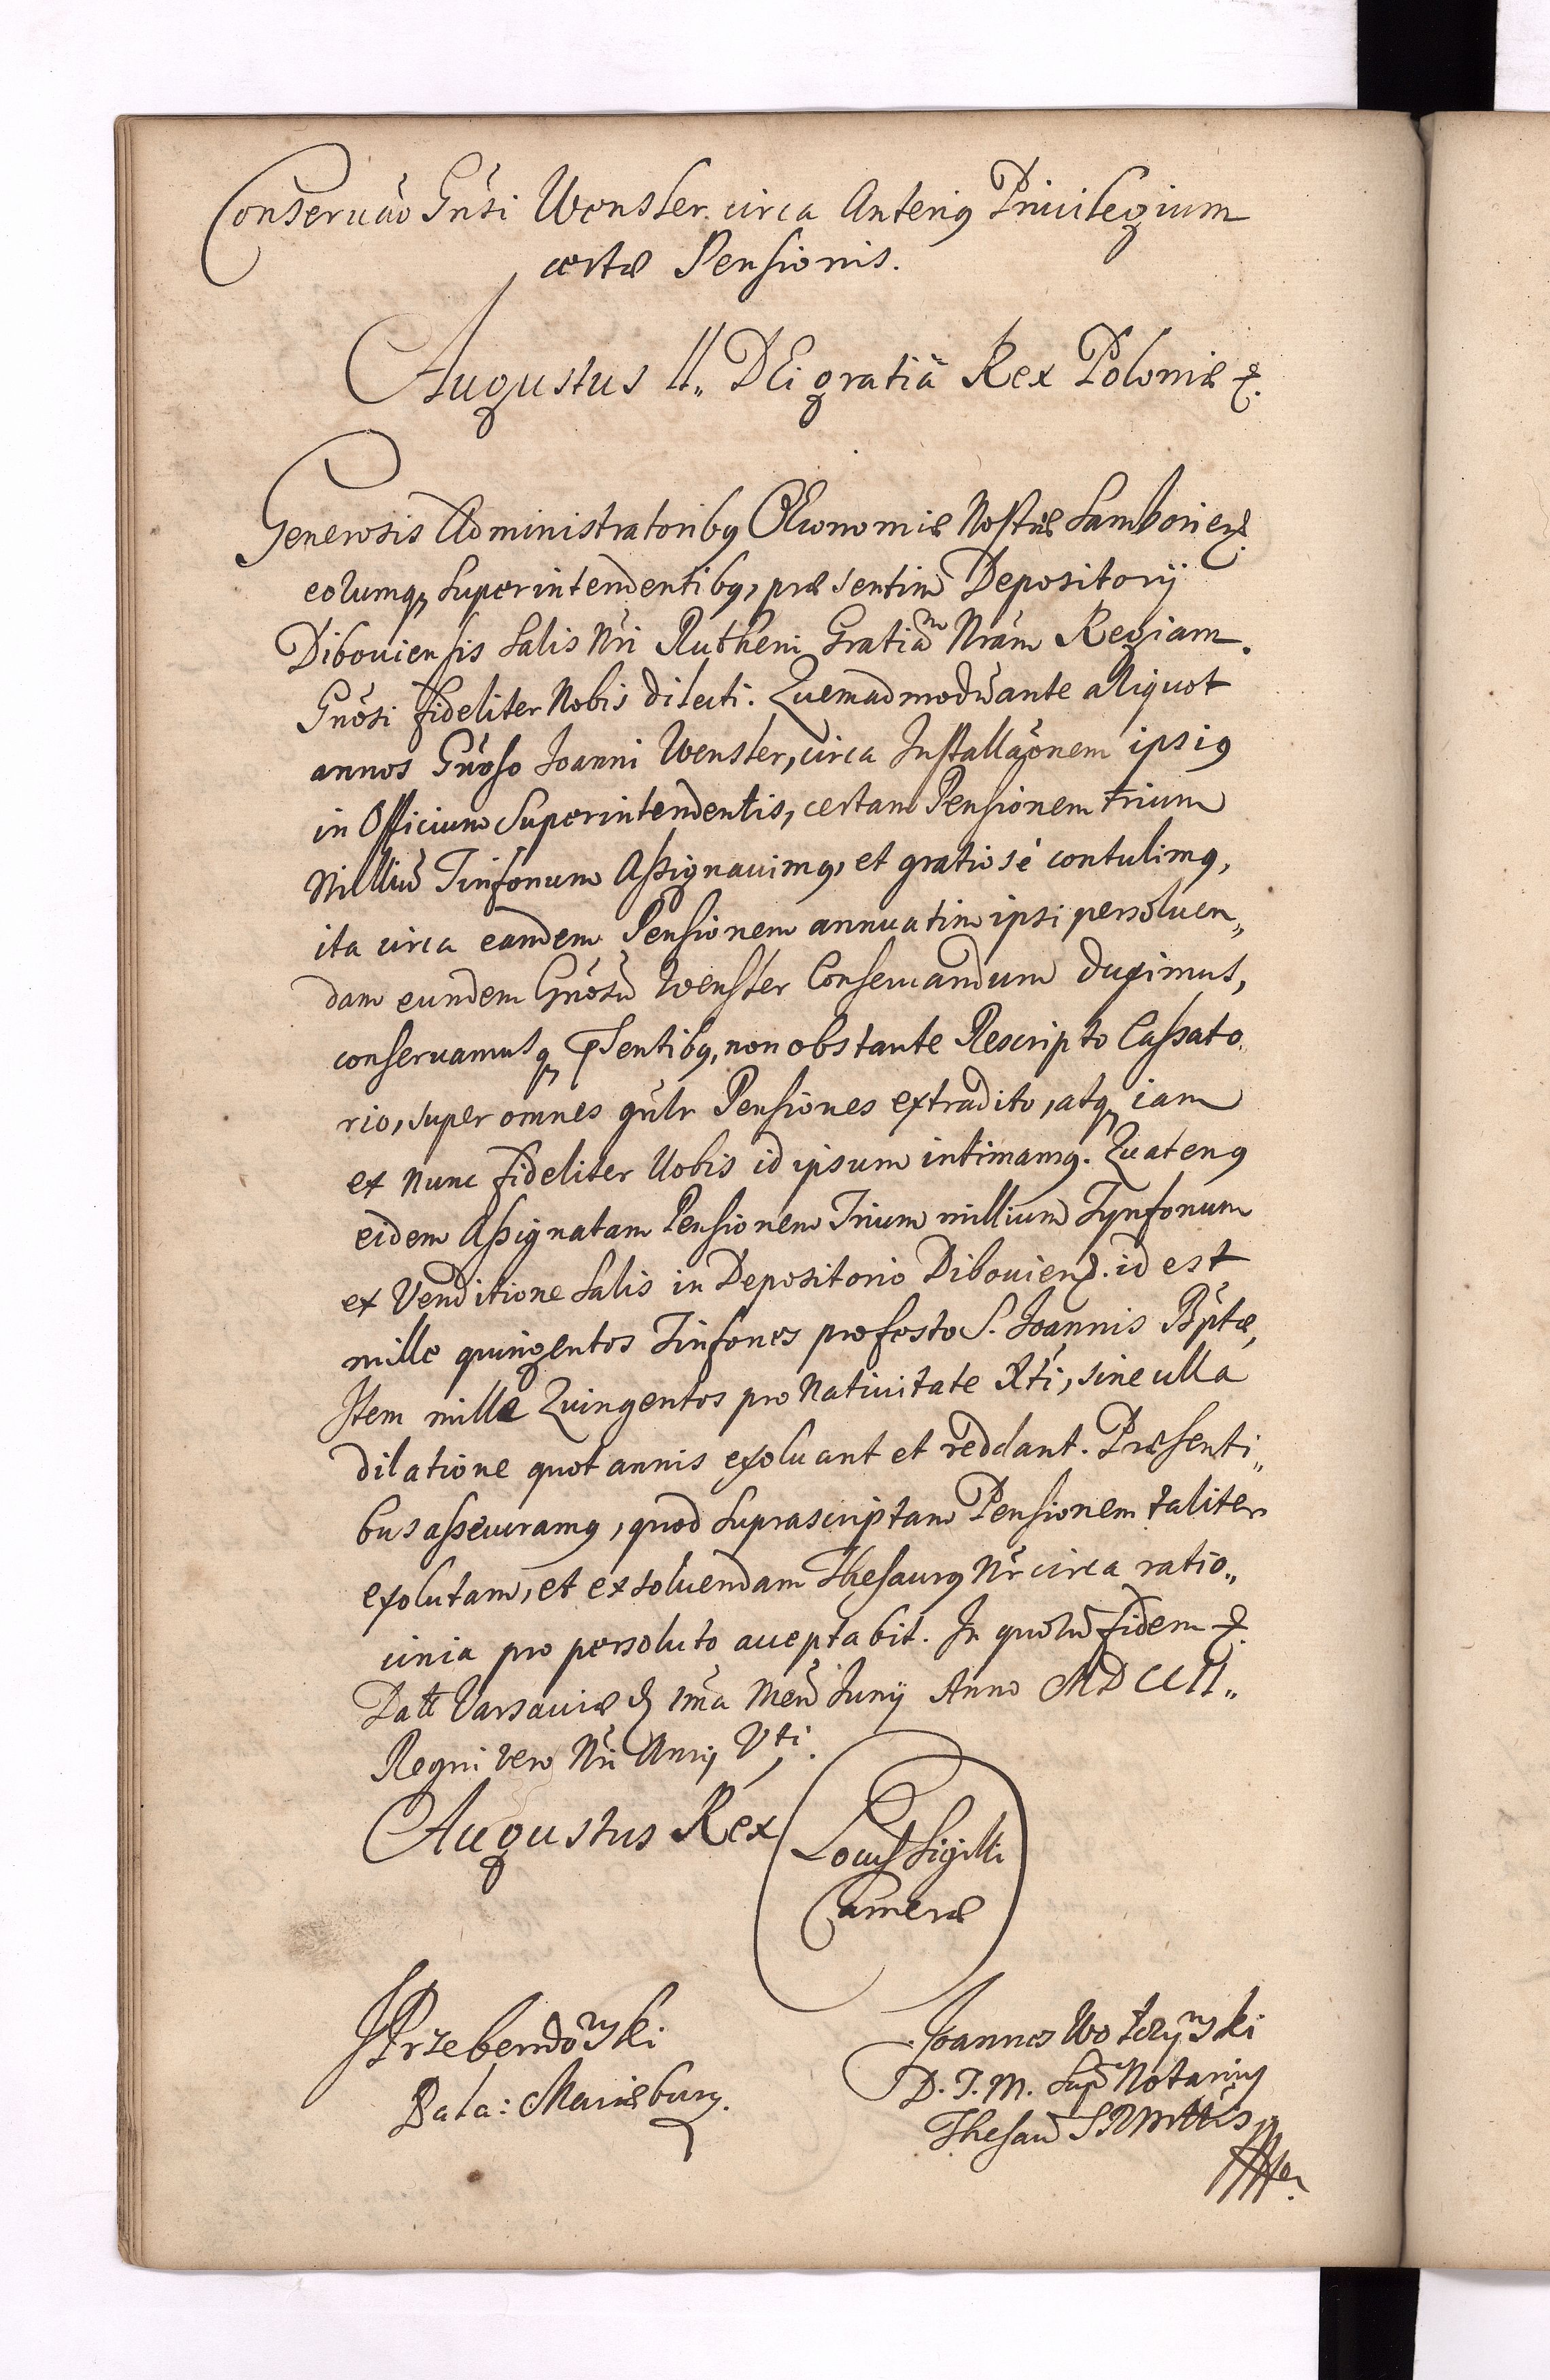 Conseruão Gñsi Wenster circa Anteriq Priuilegium
certæ Pensionis.
Augustus II„ DEi gratiâ Rex Poloniæ &.
Generosis Administratoribq Œconomiæ Nostræ Samborien̄.
eorumq Superintendentibq, præsertim Depositorij
Diboviensis Salis Nr̃i Rutheni Gratiam Nrãm Regiam.
Gnõsi fideliter Nobis dilecti. Quemadmodũ ante aliquot
annos Gnõso Joanni Wenster, circa Installãonem ipsiq
in Officium Superintendentis, certam Pensionem trium
Milliũ Tinfonum Assignauimq, et gratiosè contulimq,
ita circa eandem Pensionem annuatim ipsi persoluen„
dam eundem Gnõsũ Wenster Conseruandum duximus,
conseruamusq pñsentibq, non obstante Rescripto Cassato„
rio, super omnes gñlr Pensiones extradito, atq iam
ex nunc fideliter Vobis id ipsum intimamq. Quatenq
eidem Assignatam Pensionem Trium millium Tynfonum
ex Venditione Salis in Depositorio Dibovien̄. id est
mille quingentos Tinfones pro festo S. Joannis Bp̃tæ,
Item mille Quingentos pro Nativitate Xti, sine ulla
dilatione quotannis exoluant et reddant. Præsenti„
bus assecuramq, quod Suprascriptam Pensionem taliter
exolutam, et exsoluendam Thesaurq Nr̃ circa ratio„
cinia pro persoluto acceptabit. In quorũ fidem &.
Datt Varsaviæ D 1mã Men̄ Junij Anno MDCCII„
Regni vero Nr̃i Anno Vti.
Augustus Rex
Locus Sigilli
Cameræ
JPrzebendowski
Pala: Mariæburg.
Joannes Wołczynski
D. T. M. Sup̃ Notariq
Thesau SRMttis